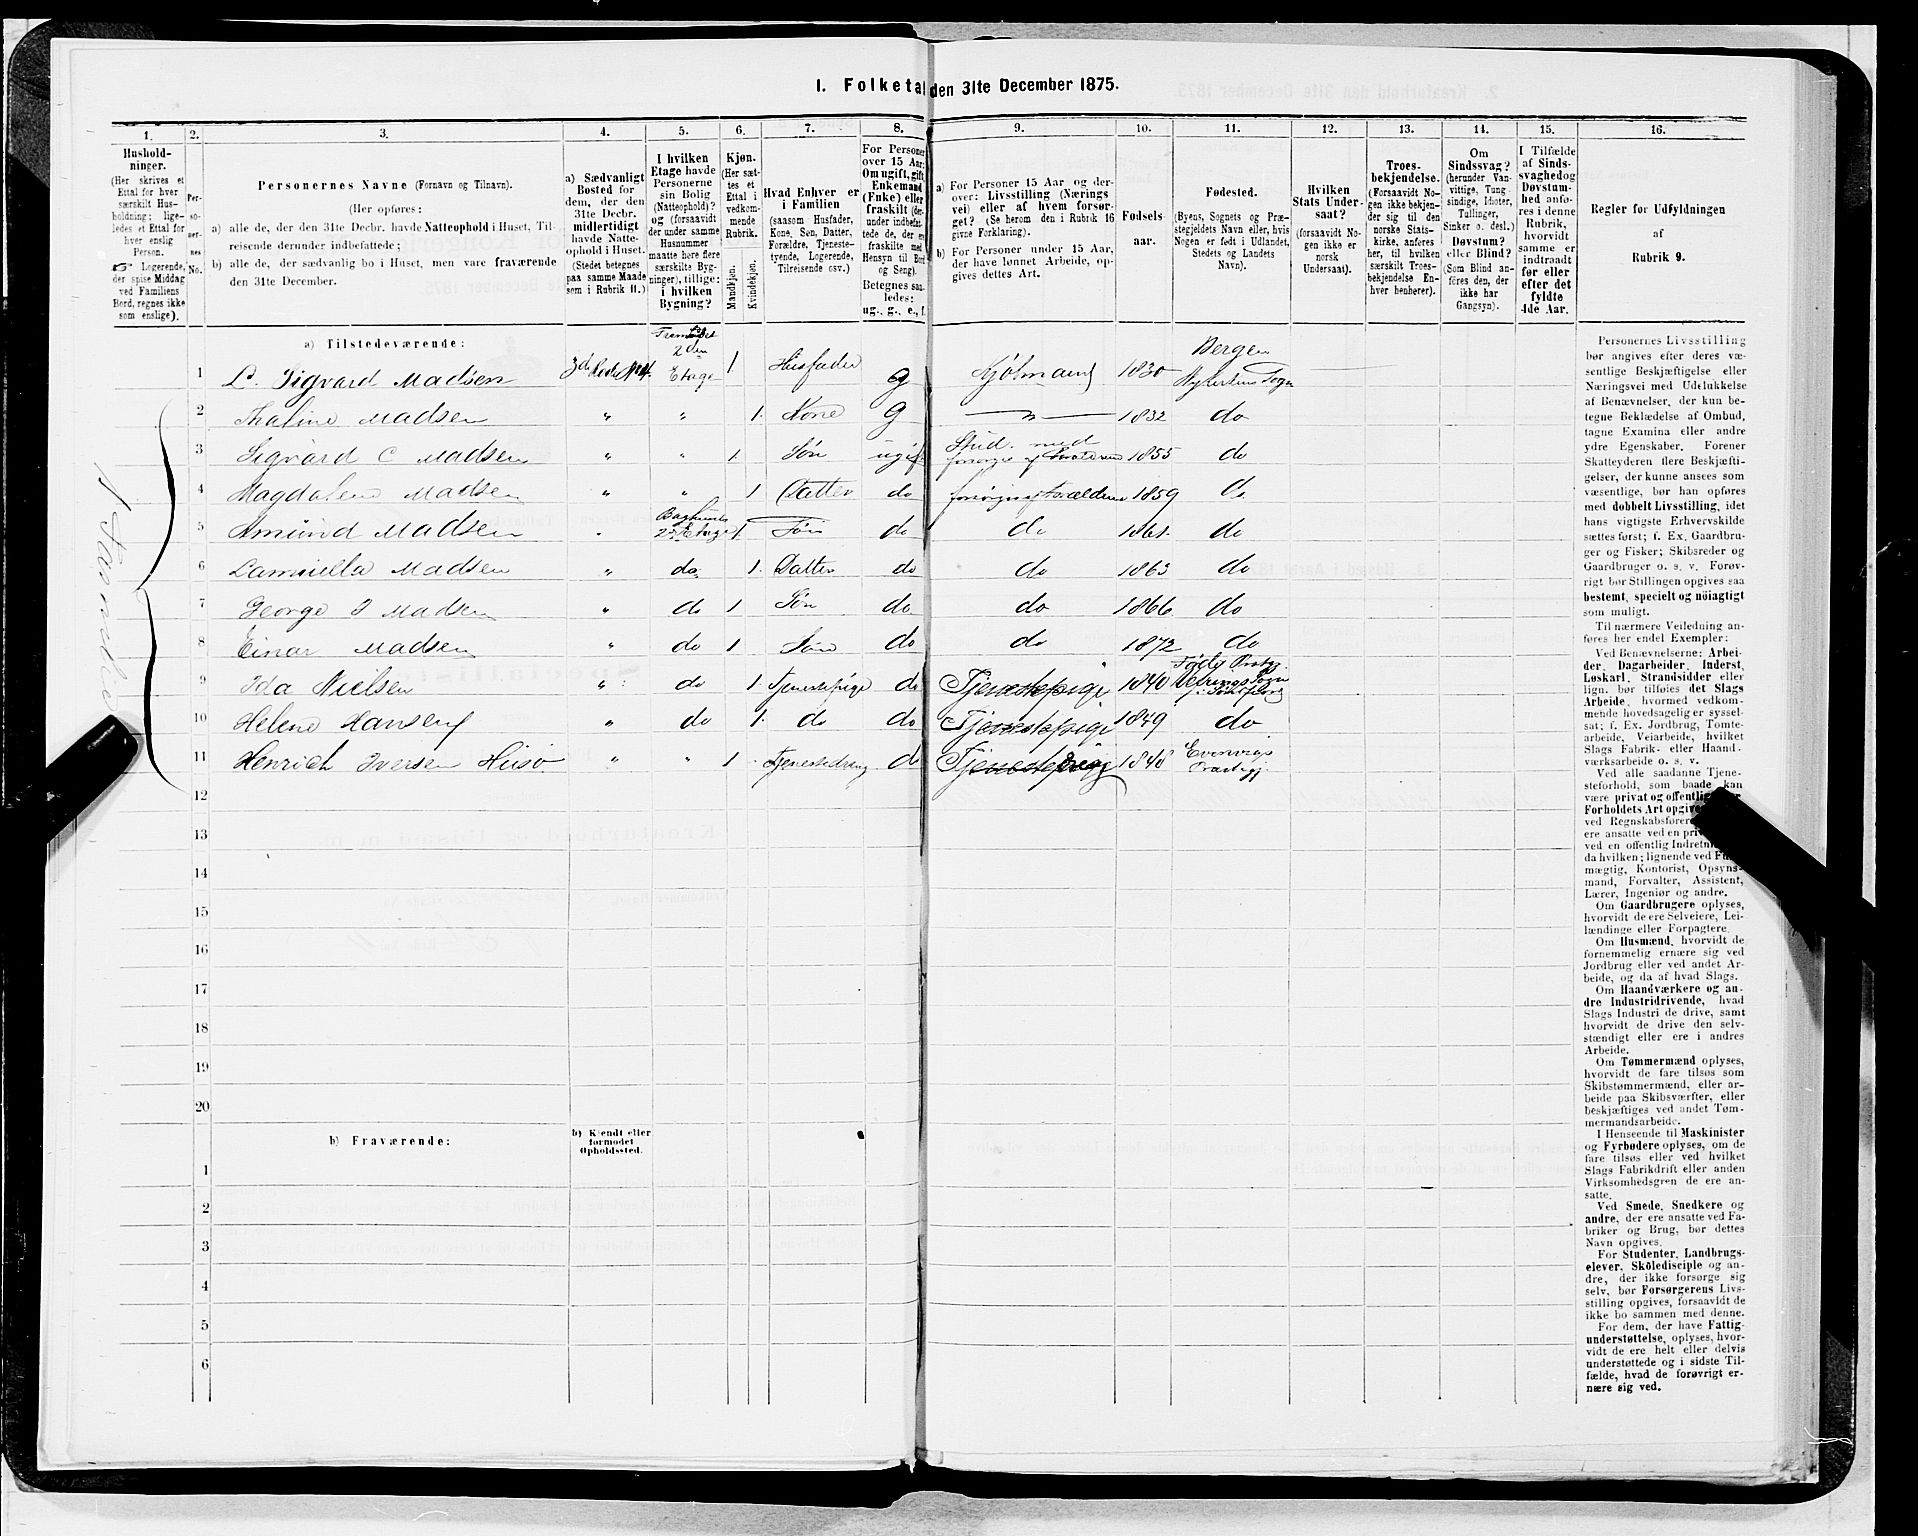 1. Folketal den 31te December 1875.
1. 2. 3. 4. 5. 6. 7. 8. 9. 10. 11. 12. 13. 14. 15. 16.
Hushold-
ninger.
(Her skrives et
Ettal for hver
særskilt Hus-
holdning; lige-
ledes et Ettal for
hver enslig
Person.
☞ Logerende,
der spise Middag
ved Familiens
Bord, regnes ikke
som enslige).
Per-
so-
ner-
nes
No.
Personernes Navne (Fornavn og Tilnavn).
(Her opføres:
a) alle de, der den 31te Decbr. havde Natteophold i Huset, Til-
reisende derunder indbefattede;
b) alle de, der sædvanlig bo i Huset, men vare fraværende
den 31te December.
a) Sædvanligt
Bosted for
dem, der den
31te Decbr.
midlertidigt
havde Natte-
ophold i Huset.
(Stedet betegnes
paa samme Maade
som i Rubrik 11.)
I hvilken
Etage havde
Personerne
sin Bolig
(Natteophold)?
og (forsaavidt
der under samme
Husnummer
maatte høre flere
særskilte Byg-
ninger), tillige:
i hvilken
Bygning?
Kjøn.
(Her sæt-
tes et
Ettal i
vedkom-
mende
Rubrik.
Mandkjøn.
Kvindekjøn.
Hvad Enhver er
i Familien
(saasom Husfader,
Kone, Søn, Datter,
Forældre, Tjeneste-
tyende, Logerende,
Tilreisende osv.)
For Personer
over 15 Aar:
Om ugift, gift,
Enkemand
(Enke) eller
fraskilt (der-
under indbefat-
tede de, der ere
fraskilte med
Hensyn til Bord
og Seng).
Betegnes saa-
ledes:
ug., g., e., f.
a) For Personer 15 Aar og der-
over: Livsstilling (Nærings-
vei) eller af hvem forsør-
get? (Se herom den i Rubrik 16
givne Forklaring).
b) For Personer under 15 Aar,
der have lønnet Arbeide, op-
gives dettes Art.
Fødsels-
aar.
Fødested.
(Byens, Sognets og Præ-
stegjeldets Navn eller, hvis
Nogen er født i Udlandet,
Stedets og Landets
Navn).
Hvilken
Stats Under-
saat?
(forsaavidt No-
gen ikke er
norsk
Undersaat).
Troes-
bekjendelse.
(Forsaavidt No-
gen ikke bekjen-
der sig til den
norske Stats-
kirke, anføres
her, til hvilken
særskilt Troes-
bekjendelse En-
hver henhører).
Om
Sindssvag?
(herunder Van-
vittige, Tung-
sindige, Idioter,
Tullinger,
Sinker o. desl.)
Døvstum?
eller Blind?
(Som Blind an-
føres den, der
ikke har
Gangsyn).
I Tilfælde
af Sinds-
svaghed og
Døvstum-
hed anfø-
res i denne
Rubrik,
hvorvidt
samme er
indtraadt
før eller
efter det
fyldte
4de Aar.
Regler for Udfyldningen
af
Rubrik 9.
a) Tilstedeværende:
1 L. Sigvard Madsen 3d Rode No 4. 2den Etage 1 Husfader g Kjøbmand 1830 Bergen Nykirkens Sogn
2 Thaline Madsen " " 1. Kone g — " — 1832 do
3 Sigvard C Madsen " " 1. Søn ugift Stud. med 1855 do
4 Magdalene Madsen " " 1 Datter do forsørges af Forældrene 1859 do
5 Amund Madsen " Baghuset 2den Etage 1. Søn do do 1861. do
6 Camilla Madsen " do 1. Datter do do 1863 do
7 George J Madsen " do 1 Søn do do 1866 do
8 Einar Madsen " do 1 Søn do do 1872 do
9 Ida Nielsen " do 1. Tjenestepige do Tjenestepige 1840 Sogn
10 Helene Hansen " do 1. do do Tjenestepige 1849 do
11 Henrich Iversen Husø " " 1 Tjenestedreng do 1848 Evenvigs Præstegj.
12
13
14
15
16
17
18
19
20
b) Fraværende:
b) Kjendt eller
formodet
Opholdssted.
1
2
3
4
5
6
Personernes Livsstilling
bør angives efter deres væ-
sentlige Beskjæftigelse eller
Næringsvei med Udelukkelse
af Benævnelser, der kun be-
tegne Beklædelse af Ombud,
tagne Examina eller andre
ydre Egenskaber. Forener
Skatteyderen flere Beskjæfti-
gelser, der kunne ansees som
væsentlige, bør han opføres
med dobbelt Livsstilling, idet
hans vigtigste Erhvervskilde
sættes først; f. Ex. Gaardbru-
ger og Fisker; Skibsreder og
Gaardbruger o. s. v. Forøv-
rigt bør Stillingen opgives saa
bestemt, specielt og nöiagtigt
som muligt.
Til nærmere Veiledning an-
føres her endel Exempler:
Ved Benævnelserne: Arbei-
der, Dagarbeider, Inderst,
Løskarl, Strandsidder eller
lign. bør tilføies det Slags
Arbeide, hvormed vedkom-
mende hovedsagelig er syssel-
sat; f. Ex. Jordbrug, Tomte-
arbeide, Veiarbeide, hvilket
Slags Fabrik- eller Haand-
værksarbeide o. s. v.
Ved alle saadanne Tjene-
steforhold, som baade kan
være privat og offentlig,
Forholdets Art opgives
ved Regnskabsførere,
ere ansatte ved en
ved en offentlig
da hvilken; lignende ved
mægtig, Kontorist, Opsyns-
mand, Forvalter, Assistent,
Lærer, Ingeniør og andre.
Om Gaardbrugere oplyses,
hvorvidt de ere Selveiere, Lei-
lændinge eller Forpagtere.
Om Husmænd, hvorvidt de
fornemmelig ernære sig ved
Jordbrug eller ved andet Ar-
beide, og da af hvad Slags.
Om Haandværkere og an-
dre Industridrivende, hvad
Slags Industri de drive, samt
hvorvidt de drive den selv-
stændigt eller ere i andres
Arbeide.
Om Tømmermænd oplyses,
hvorvidt de fare tilsøs som
Skibstømmermænd, eller ar-
beide paa Skibsværfter, eller
beskjæftiges ved andet Tøm-
mermandsarbeide.
I Henseende til Maskinister
og Fyrbødere oplyses, om de
fare tilsøs eller ved hvilket
Slags Fabrikdrift eller anden
Virksomhedsgren de ere an-
satte.
Ved Smede, Snedkere og
andre, der ere ansatte ved Fa-
briker og Brug, bør dettes
Navn opgives.
For Studenter, Landbrugs-
elever, Skoledisciple og an-
dre, der ikke forsørge sig
selv, bør Forsørgerens Livs-
stilling opgives, forsaavidt de
ikke bo sammen med denne.
For dem, der have Fattig-
understøttelse, oplyses, hvor-
vidt de ere helt eller delvis
understøttede og i sidste Til-
fælde, hvad de forøvrigt er-
nære sig ved.